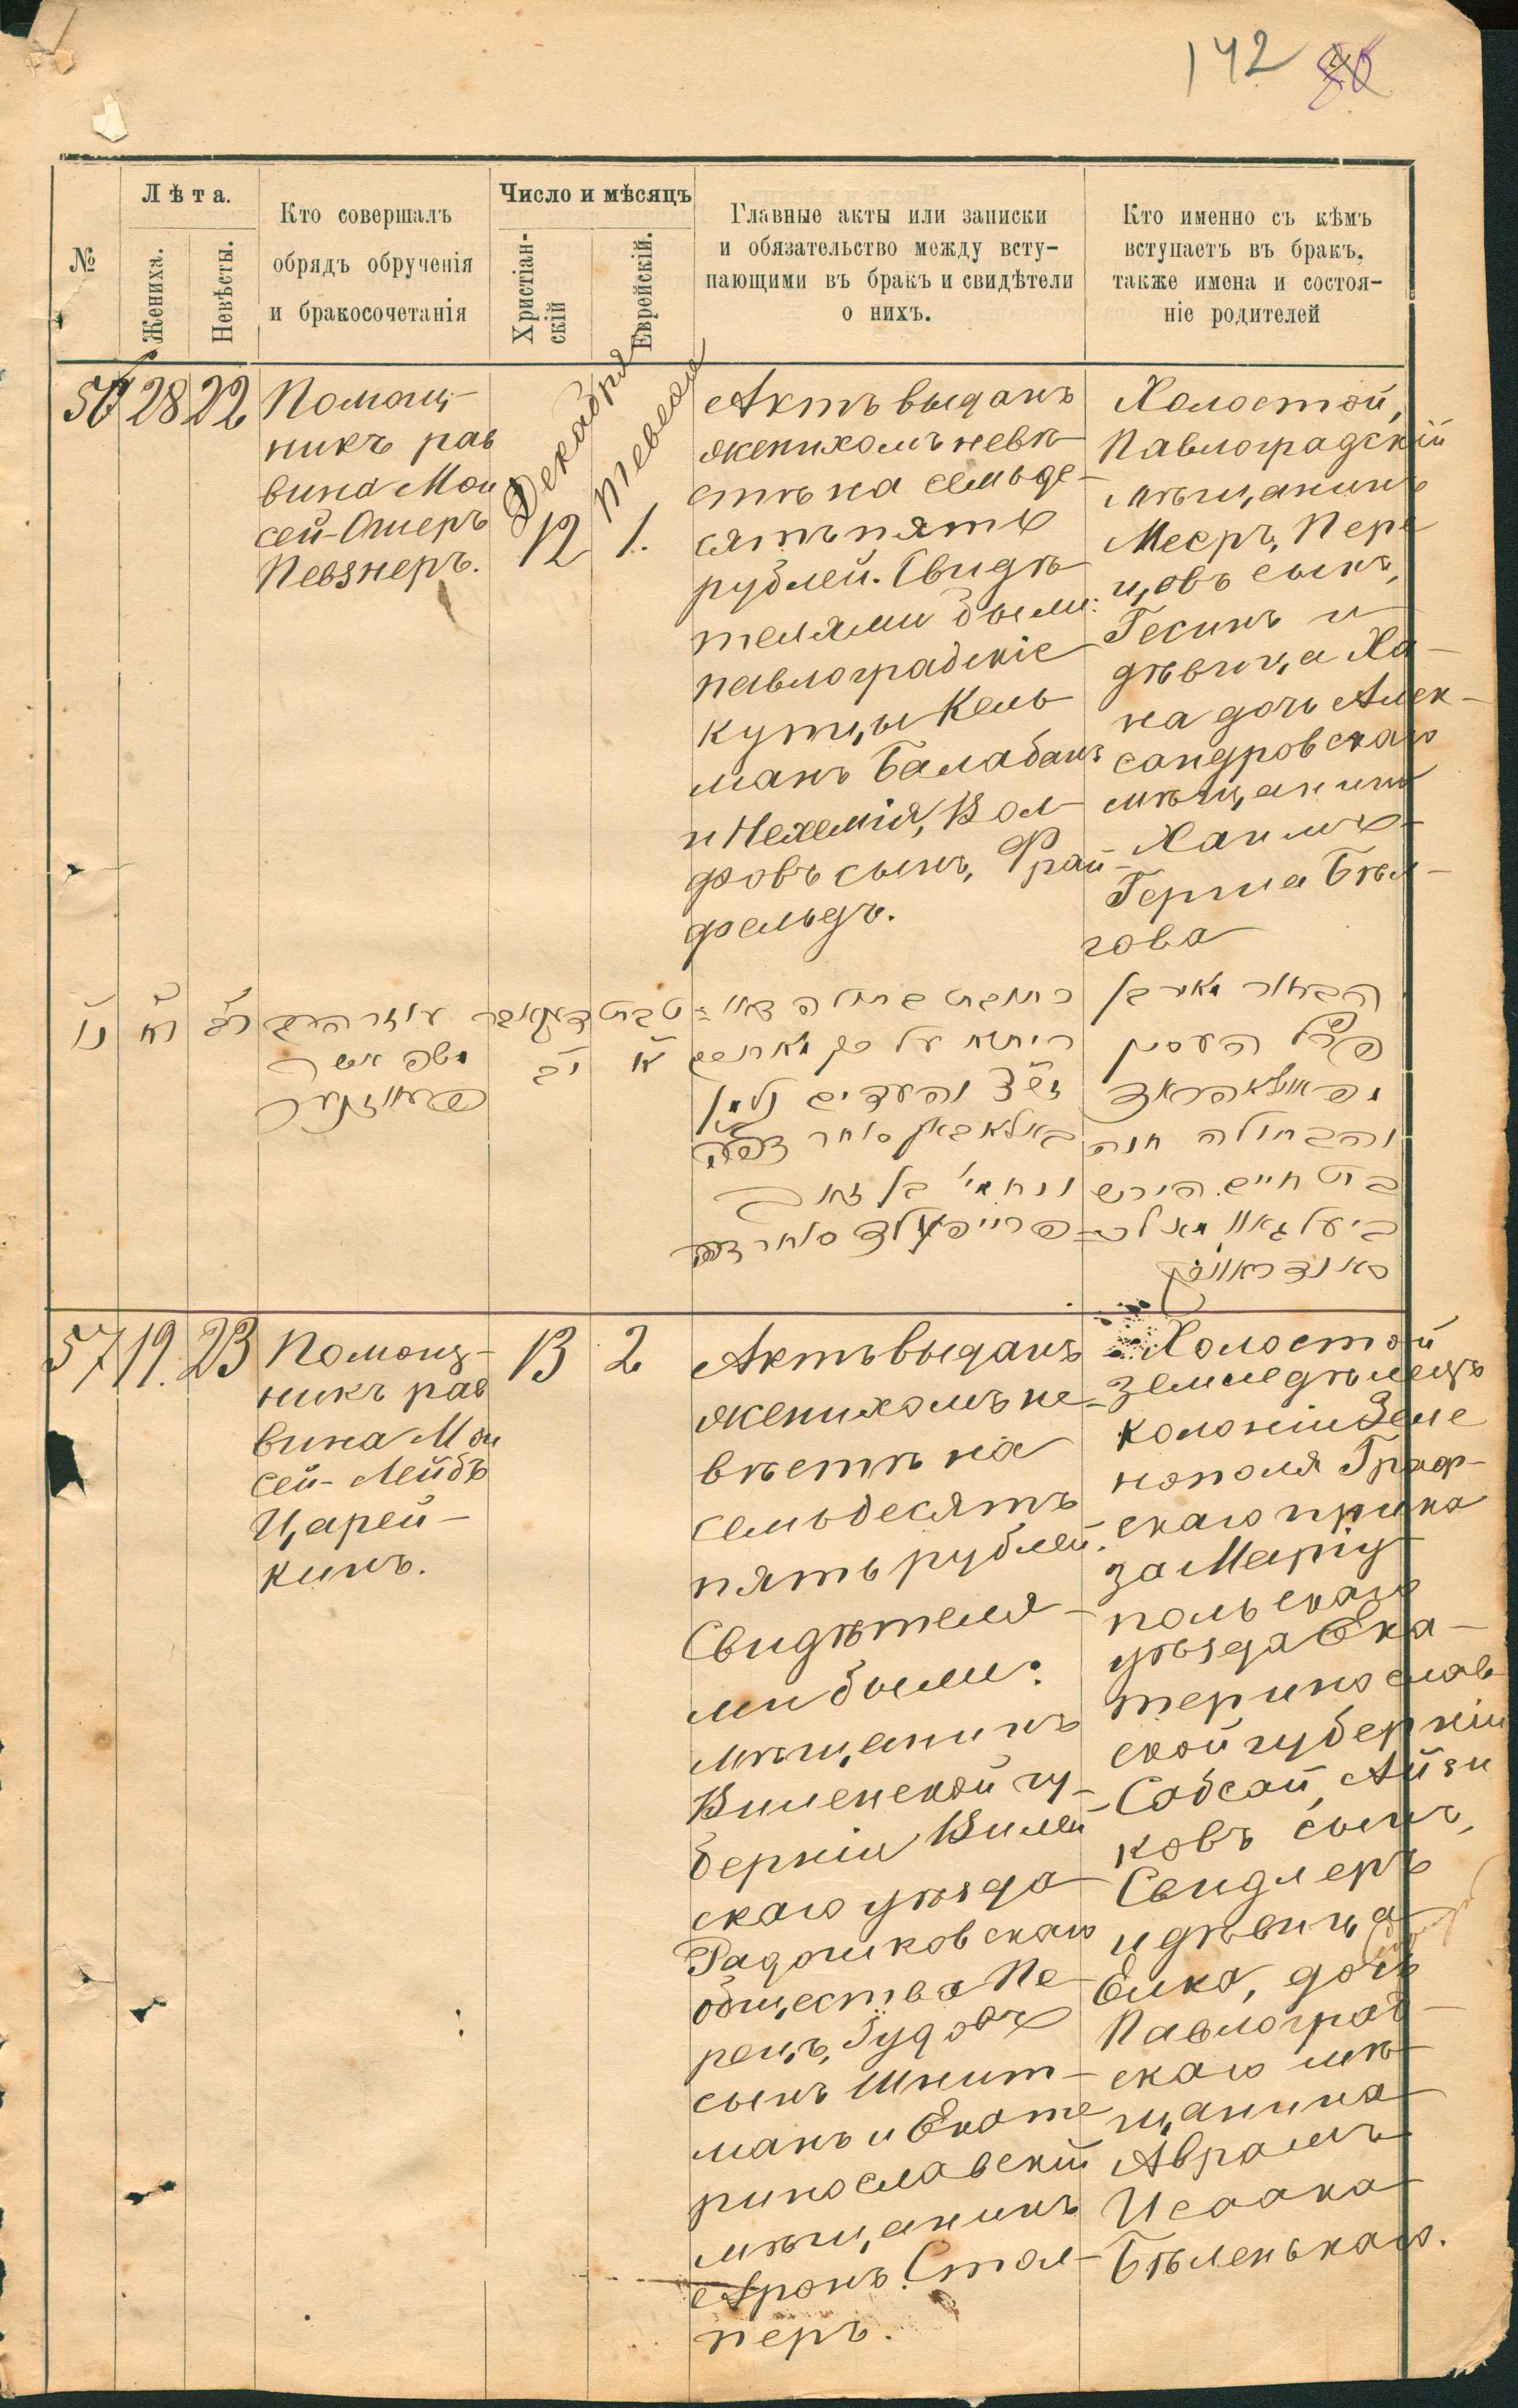 142
№
Лѣта.
Жениха.
Невѣсты.
Кто совершалъ
обрядъ обрученія
и бракосочетанія
Число и мѣсяцъ
Христіан-
скій
Еврейскій.
Главные акты или записки
и обязательство между всту-
пающими въ бракъ и свидѣтели
о нихъ.
Кто именно съ кѣмъ
вступаетъ въ бракъ,
также имена и состоя-
ніе родителей
56
28
22
Помощ-
никъ рав
вина Мои
сей-Ошеръ
Певзнеръ.
Декабря
12
Тевеса
1.
Актъ выданъ
женихомъ невѣ
стѣ на семьде-
сятъ пять
рублей. Свидѣ
телями были:
павлоградскіе
купцы Кель
манъ Балабанъ
и Нехемія, Вол
фовъ сынъ, Фрай-
фельдъ.
Холостой,
Павлоградскій
мѣщанинъ
Мееръ, Пере
цовъ сынъ,
Гесинъ и
дѣвица Ха-
на дочь Алек-
сандровскаго
мѣщанина
Хаимъ-
Герша Бѣл-
гова
נו
כח
כב
עוזר הרב
משה אשר
פעווזנער
דעקאבר
יב
טבת
א
והעדים קלמן
באלאבאן סוחר
ונחמי' בן זאב
פרייפעלד סוחר
הבחור מאיר בן
פרץ העסין
והבתולה חנה
בת חיים הירש
57
19.
23
Помощ-
никъ рав
вина Мои
сей-Лейбъ
Царей-
кинъ.
13
2
Актъ выданъ
женихомъ не-
вѣстѣ на
семьдесятъ
пять рублей.
Свидѣтеля-
ми были:
мѣщанинъ
Виленской гу-
берніи Вилей-
скаго уѣзда
Радошковскаго
общества Пе-
рецъ, Іудовъ
сынъ Шнит-
манъ и Екате
ринославскій
мѣщанинъ
Аронъ Стол-
перъ.
Холостой
земледѣлецъ
колоніи Зеле
нополя Граф-
скаго прика
за Маріу
польскаго
уѣзда Ека-
теринослав
ской губерніи
Сабсай, Айзи
ковъ сынъ,
Свидлеръ
и дѣвица
Елка, дочь
Павлоград-
скаго мѣ-
щанина
Аврамъ
Исаака
Бѣленькаго.